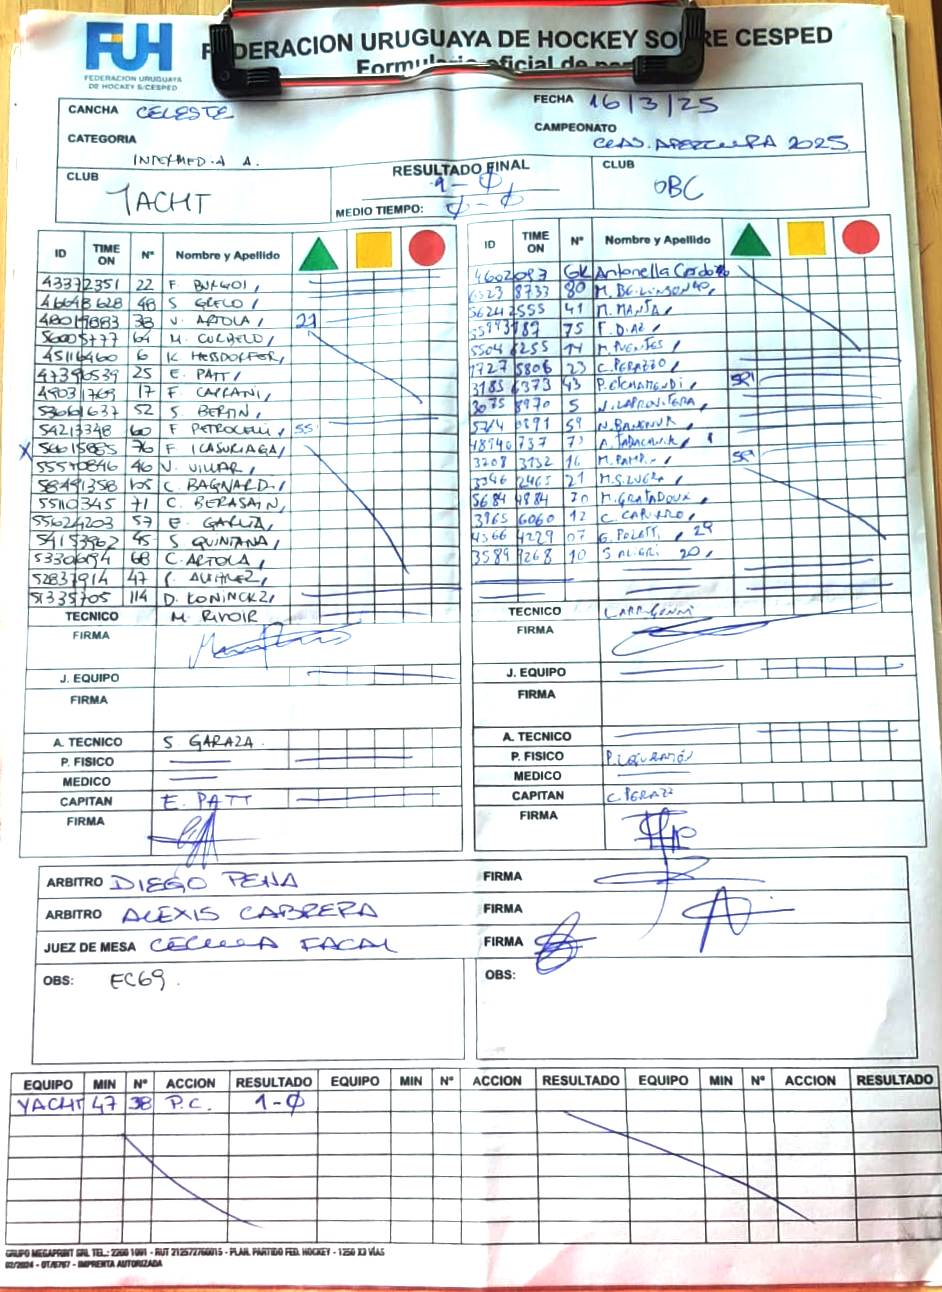 FUH
FEDERACION URUGUAYA
DE HOCKEY S/CESPED
FEDERACION URUGUAYA DE HOCKEY SOBRE CESPED
Formulario oficial de
CANCHA CELESTE
FECHA 16/3/25
CATEGORIA
INTERMEDIA A.
CAMPEONATO
CLAS. APERTURA 2025
CLUB
YACHT
RESULTADO FINAL
1-0
MEDIO TIEMPO: 0-0
CLUB
OBC
ID TIME ON N° Nombre y Apellido
43372351 22 F
46648628 48 S
48019883 38 V. ARTOLA, 21
56005777 64 M. CURBELO,
45116460 6 K. HESDORFER,
47396539 25 E. PATT,
49031769 17 F
53661637 52 S. BERTIN,
54213348 60 F 55
X 56615885 76 F ICASURIAGA,
55570846 46 V. VILLAR,
58491358 105 C. BAGNARDI,
55110345 71 C. BERASAIN,
55624203 57 E. GARCIA,
54153962 45 S QUINTANA,
53306194 68 C. ARTOLA,
52837914 47
51335705 114 D. KONINCKZ,
TECNICO M. RIVOIR
FIRMA
J. EQUIPO
FIRMA
A. TECNICO S GARAZA.
P. FISICO
MEDICO
CAPITAN E. PATT
FIRMA
ID TIME ON N° Nombre y Apellido
4602093 GK Antonella Cardozo
8733 80 M.
36242555 41 M. MANTA,
75 F. DIAZ,
5504 6255 14 M. FUENTES,
1727 5806 23 C. PERAZZO,
3185 6373 43 P. ETCHAMENDI,
3075 8970 5
59 N.
737 73 A.
3208 3132 16 M.
3346 2465 21 M.S.
5684 4884 M. GRATADOUX,
3965 6060 12 C. CAPURRO,
4366 4229 07 G. POLATTI, 29
3589 9268 10 20,
TECNICO
FIRMA
J. EQUIPO
FIRMA
A. TECNICO
P. FISICO
MEDICO
CAPITAN C. PERAZZ
FIRMA
ARBITRO DIEGO PEÑA FIRMA
ARBITRO ALEXIS CABRERA FIRMA
JUEZ DE MESA CECILIA FACAL FIRMA
OBS: EC69.
OBS:
EQUIPO MIN N° ACCION RESULTADO EQUIPO MIN N° ACCION RESULTADO EQUIPO MIN N° ACCION RESULTADO
YACHT 47 38 P.C. 1-0
GRUPO MEGAPRINT SRL TEL.: 2200 1091 - RUT 212572760015 - PLAN. PARTIDO FED. HOCKEY - 1250 X3 VÍAS
02/2024 - OT/6767 - IMPRENTA AUTORIZADA